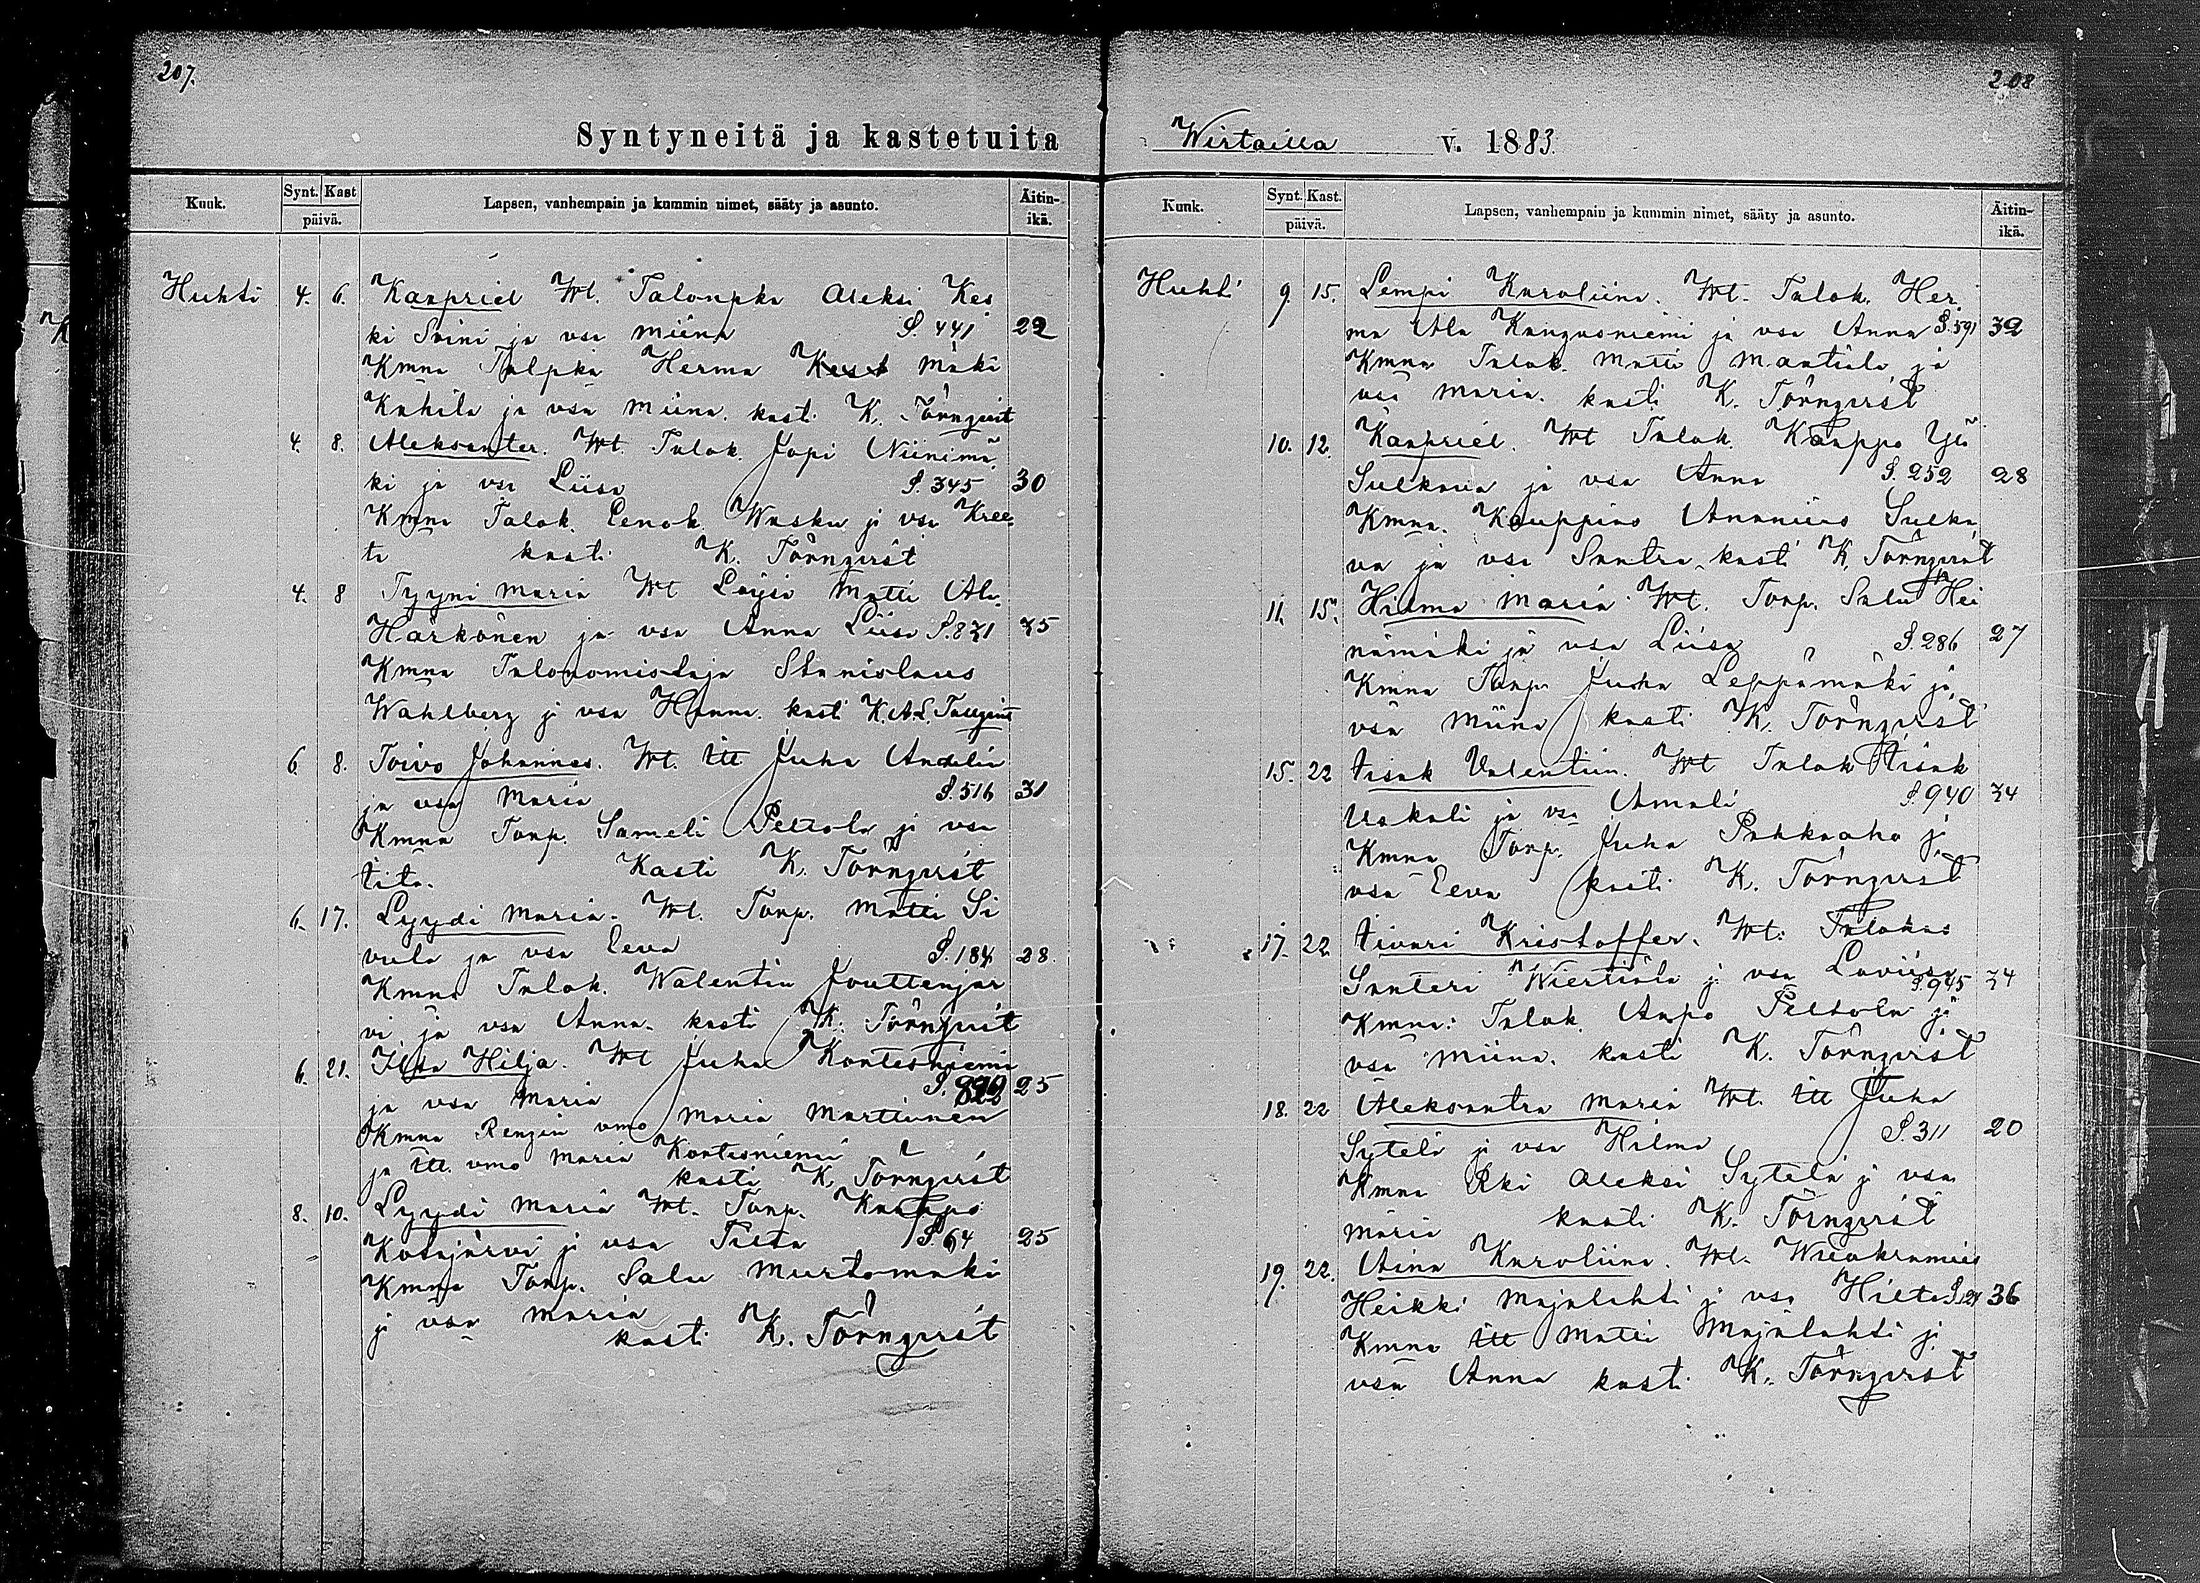 207.
Syntyneitä ja kastetuita
Kuuk.
Synt. Kast
päivä.
Lapsen, vanhempain ja kummin nimet, sääty ja asunto.
Äitin-
ikä.
Huhti 4. 6. Kaapriel Wt. Talonpka Aleksi Kes
ki Soini ja vsa Miina S. 441 22
Kmna Talpka Herma Mäki
Kahila ja vsa Miina. kasti K. Törnqvist
4. 8. Aleksanter. Wt. Talok. Jopi Niinimä
ki ja vsa Liisa S. 345 30
Kmna Talok. Eenok Wasku ja vsa Kree
ta kasti K. Törnqvist
4. 8 Tyyni Maria Wt Matti Ala
Härkönen ja vsa Anna Liisa S. 831 35
Kmna Talonomistaja Stanislaus
Wahlberg ja vsa Hanna. kasti K. A. L.
6. 8. Toivo Johannes. Wt. Itt Juha Andelin
ja vsa Maria S. 516 31
Kmna Torp. Sameli Peltola ja vsa
Iita. Kasti K. Törnqvist
6. 17. Lyydi Maria. Wt. Torp. Matti Si
vula ja vsa Eeva S. 184 28
Kmna Talok. Walentin Jouttenjär
vi ja vsa Anna. kasti K. Törnqvist
6. 21. Hilja. Wt Juha Kontesniemi
ja vsa Maria S. 25
Kmna Rengin vmo Maria Martinnen
ja Itt. vmo Maria Kontesniemi
kasti K. Törnqvist
8. 10. Lyydi Maria Wt. Torp. Kaappo
Kotajärvi ja vsa Iita S. 64 25
Kmna Torp. Salu Murtomäki
ja vsa Maria
kasti K. Törnqvist
208
Wirtailla v. 1883.
Kuuk.
Synt. Kast.
päivä.
Lapsen, vanhempain ja kummin nimet, sääty ja asunto.
Äitin-
ikä.
Huhti 9. 15. Lempi Karoliina. Wt. Talok. Her
ma Ala Kangasniemi ja vsa Anna S. 591 32
Kmna Talok. Matti Mantila ja
vsa Maria. kasti K. Törnqvist
10. 12. Kaapriel. Wt Talok. Kauppo Yli
Sulkava ja vsa Anna S. 252 28
Kmna. Kauppias Ananias Sulka
va ja vsa Santra. kasti K. Törnqvist
11. 15. Hilma Maria Wt. Torp. Salu Hei
nämäki ja vsa Liisa S. 286 27
Kmna Torp. Juha Leppämäki ja
vsa Miina kasti K. Törnqvist
15. 22 Iisak Valentiin. Wt Talok Iisak
Uskali ja vsa Amali S. 940 34
Kmna Torp. Juha Pahkaaho ja
vsa Eeva kasti K. Törnqvist
17. 22 Iivari Kristoffer. Wt. Talokas
Santeri Wiertiola ja vsa Loviisa S. 945 34
Kmna: Talok. Aapo Peltola ja
vsa Miina. kasti K. Törnqvist
18. 22 Aleksantra Maria Wt. Itt Juha
Sytelä ja vsa Hilma S. 311 20
Kmna Rki Aleksi Sytelä ja vsa
Maria kasti K. Törnqvist
19. 22. Aina Karoliina. Wt. Wuokramies
Heikki Majalahti ja vsa S. 36
Kmna Itt Matti Majalahti ja
vsa Anna kasti K. Törnqvist